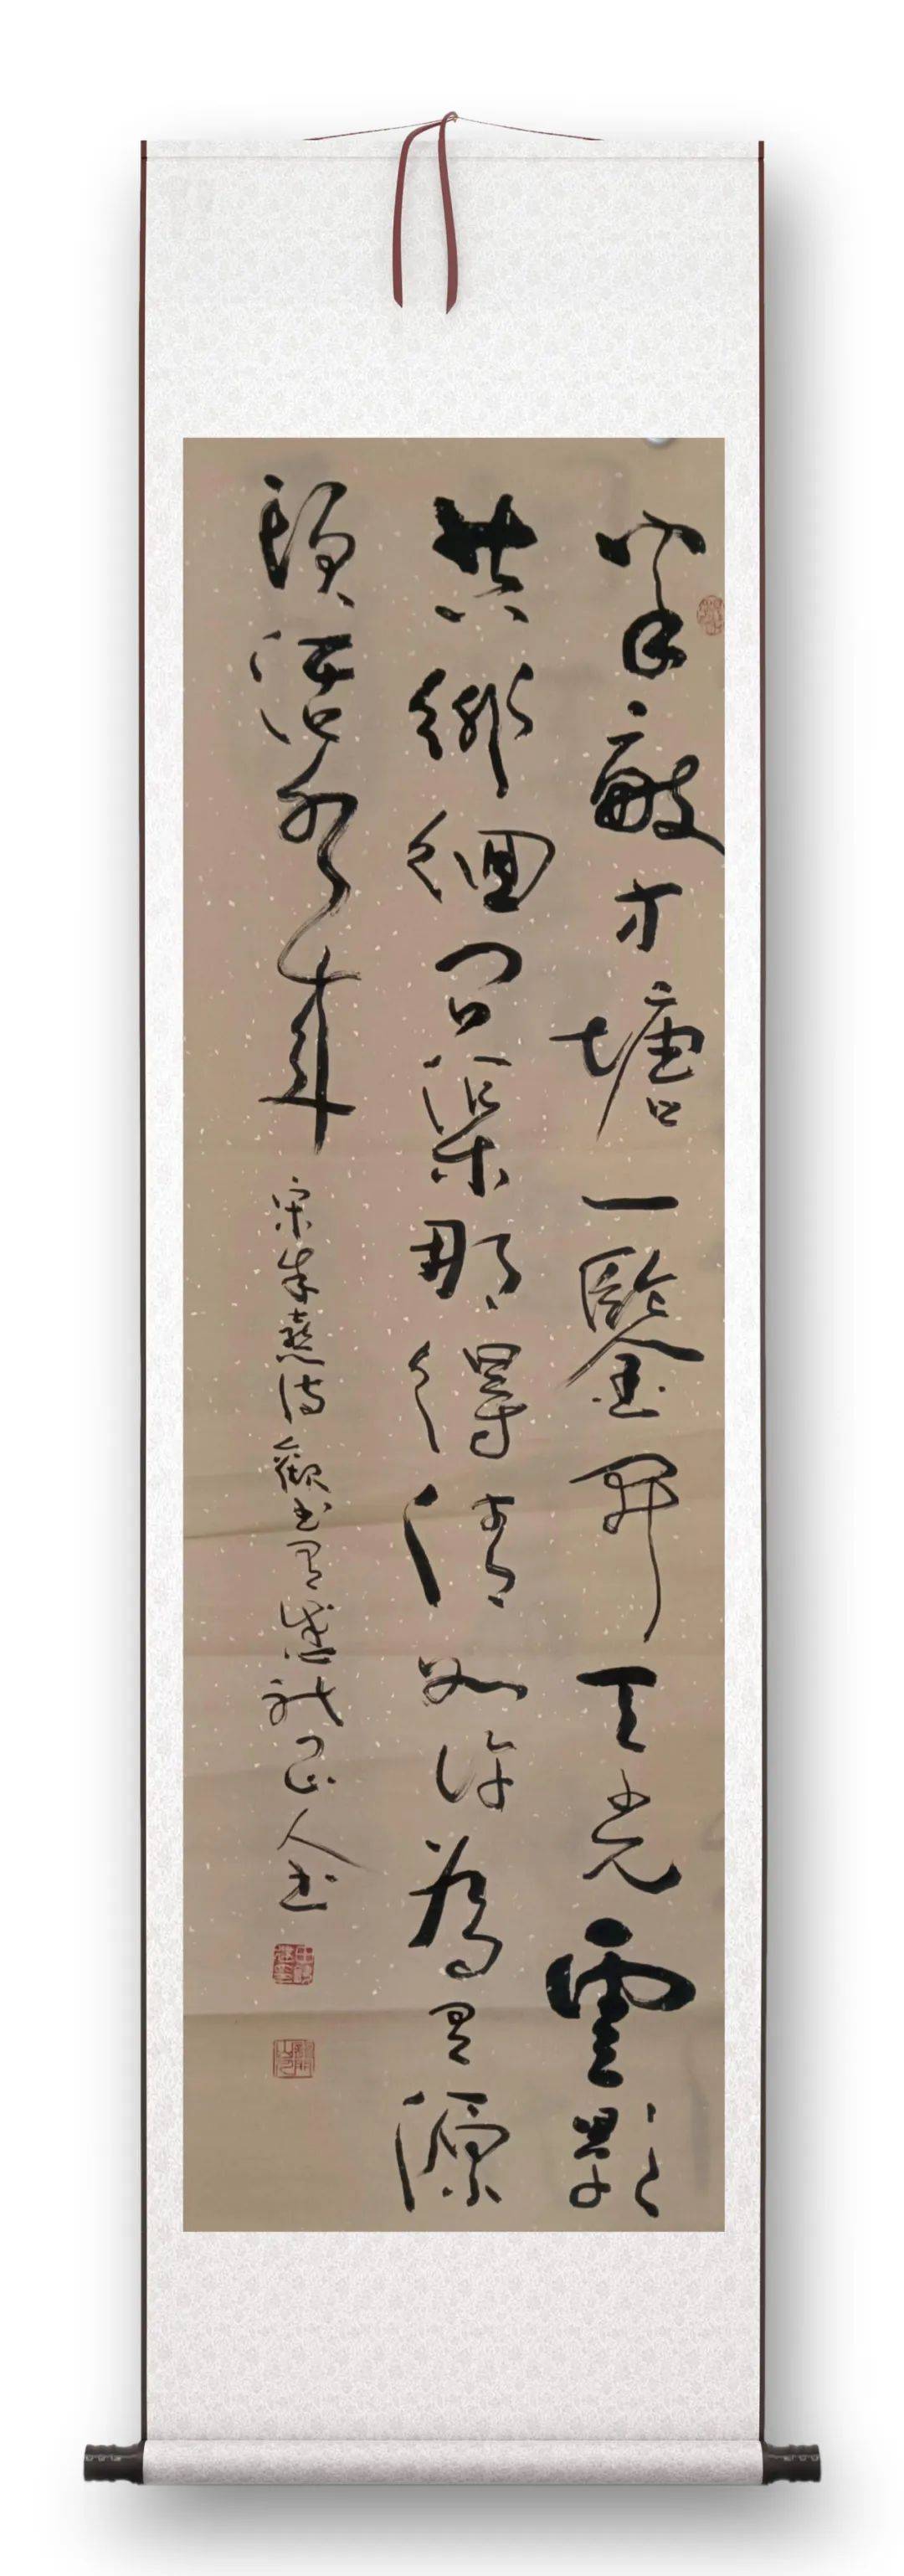 半畝方塘一鑒開天光雲影
共徘徊問渠那得清如許為有源
頭活水來
宋朱熹詩觀書有感 人書